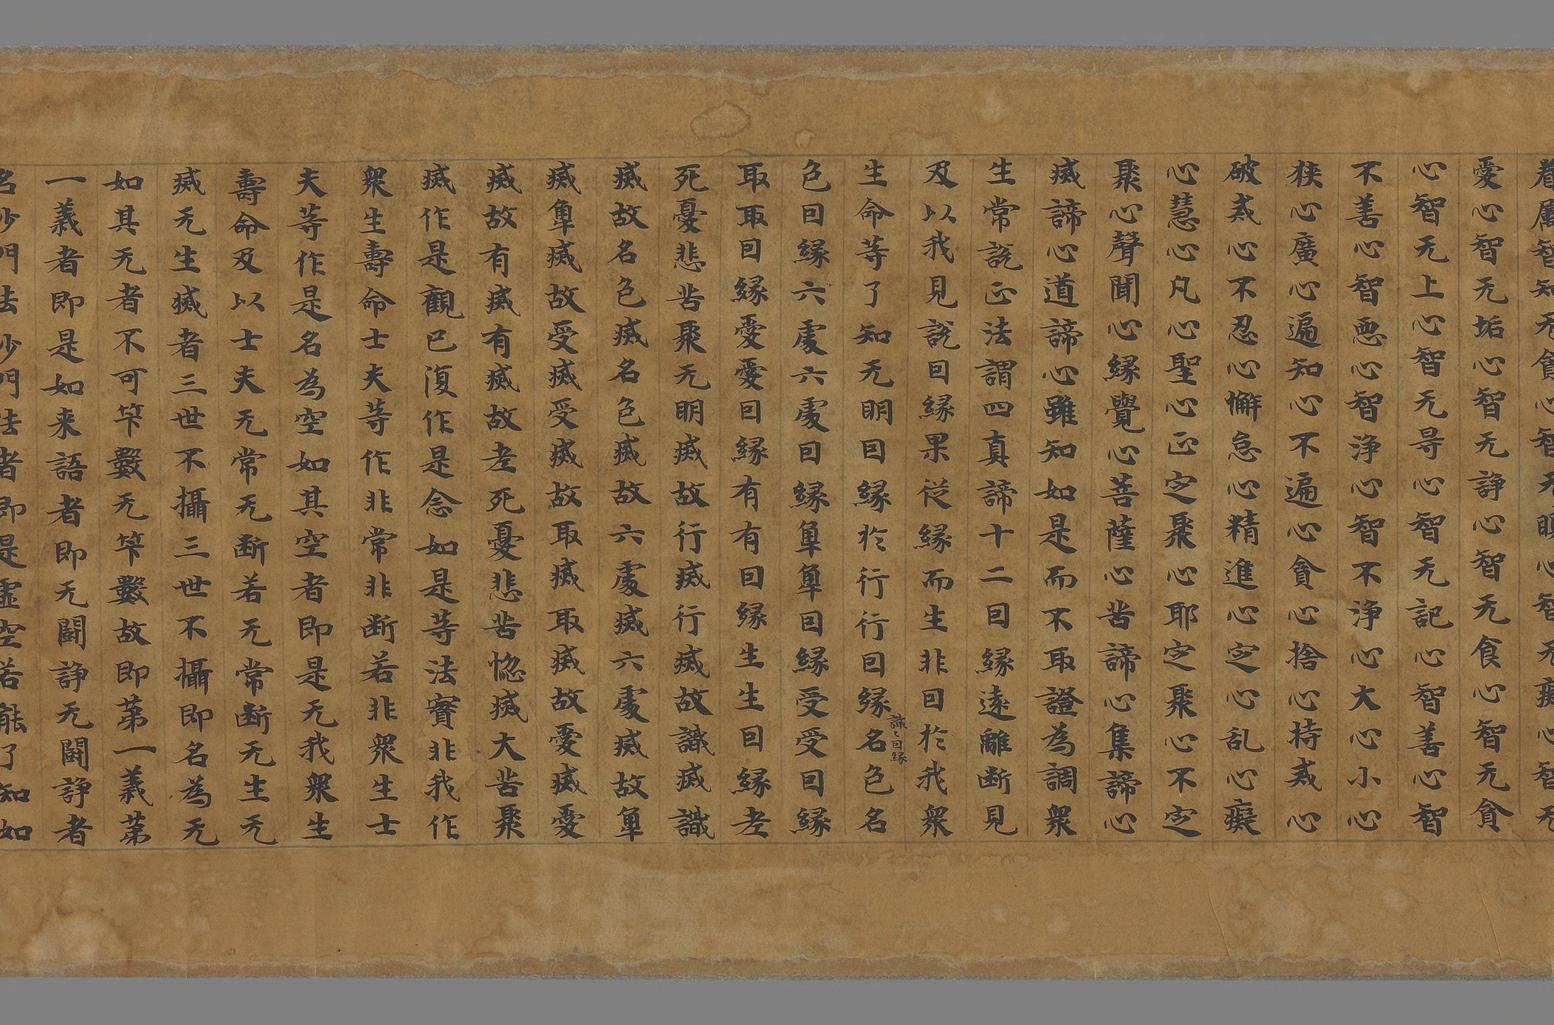 屬智知无貪心智无瞋心智无癡心智无
憂心智无垢心智无諍心智无食心智无貪
心智无上心智无㝵心智无記心智善心智
不善心智惡心智淨心智不淨心大心小心
狹心廣心遍知心不遍心貪心捨心持戒心
破戒心不忍心懈怠心精進心定心乱心癡
心慧心凡心聖心正定聚心耶定聚心不定
聚心聲聞心緣覺心菩薩心苦諦心集諦心
滅諦心道諦心雖知如是而不取證為調衆
生常說正法謂四真諦十二因緣遠離断見
及以我見說因緣果從緣而生非因於我衆
生命等了知无明因緣於行行因緣識〻因緣名色名
色因緣六處六處因緣觸觸因緣受受因緣
取取因緣憂憂因緣有有因緣生生因緣老
死憂悲苦聚无明滅故行滅行滅故識滅識
滅故名色滅名色滅故六處滅六處滅故觸
滅觸滅故受滅受滅故取滅取滅故憂滅憂
滅故有滅有滅故老死憂悲苦惱滅大苦聚
滅作是觀已復作是念如是等法實非我作
衆生壽命士夫等作非常非断若非衆生士
夫等作是名為空如其空者即是无我衆生
壽命及以士夫无常无断若无常断无生无
滅无生滅者三世不攝三世不攝即名為无
如其无者不可筭數无筭數故即第一義第
一義者即是如来語者即无鬪諍无鬪諍者
名沙門法沙門法者即是虛空若能了知如